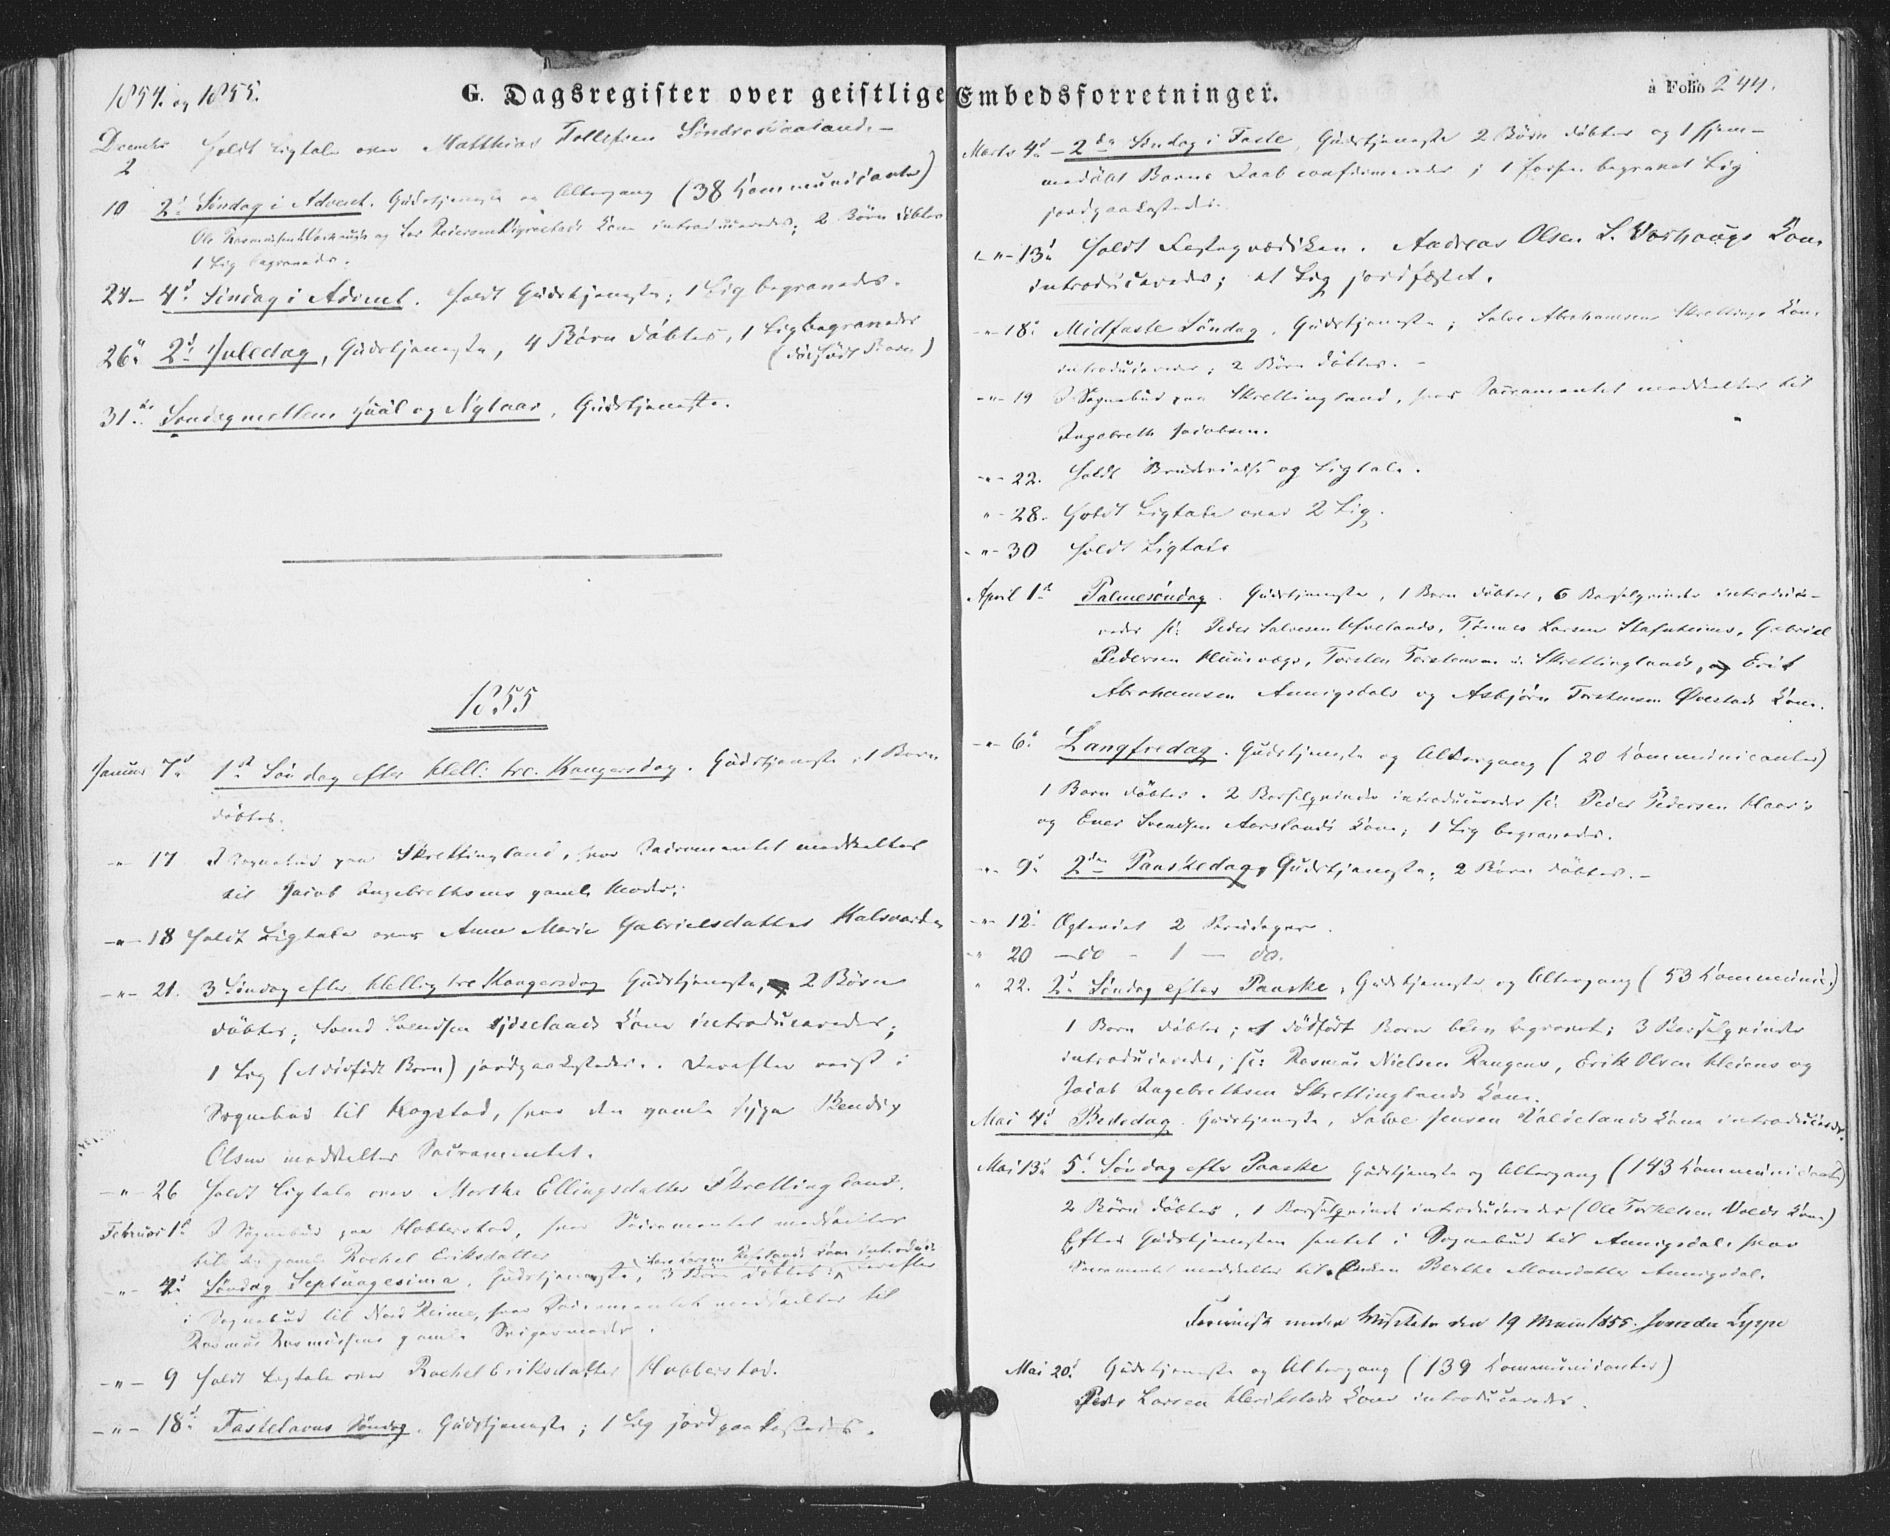 1854. og 1855.
G. Dagsregister over geistlige Embedsforretninger.
à Folio 244.
December 2 Holdt Ligtale over Matthias Tollefsen
10 2d Søndag i Advent. Gudstjeneste og Altergang (38 Kommunicanter)
Ole Rasmussen og Lars Kone introduceredes; 2 Børn døbtes
1 Lig begravedes.
24 – 4d Søndag i Advent. Holdt Gudstjeneste; 1 Lig begravedes.
26d 2d Juledag, Gudstjeneste, 4 Børn døbtes, 1 Lig begravedes
(dødfødt Barn)
31te Søndag mellem Juul og Nytaar, Gudstjeneste.
1855
Januar 7d 1st Søndag efter Hell: tre Kongersdag. Gudstjeneste, 1 Barn
døbtes.
-"- 17 I Sognebud paa Skrettingland, hvor Sacramentet meddeeltes
til Jacob Ingebrethsens gamle Moder.
-"- 18 Holdt Ligtale over Anne Marie Gabrielsdatter
-"- 21. 3 Søndag efter Hellig tre Kongersdag Gudstjeneste, 2 Børn
døbtes; Svend Svendsen Kone introduceredes;
1 Lig (et dødfødt Barn) jordpaakastedes. Derefter reist i
Sognebud til Hogstad, hvor den gamle syge Bendix
Olsen meddeeltes Sacramentet.
-"- 26 Holdt Ligtale over Marthe Ellingsdatter Skrettingland.
Februar 1d I Sognebud paa Hobberstad, hvor Sacramentet meddeeltes
til den gamle Rachel Eriksdatter
Lars Larsen Kone introduc:
-"- 4d Søndag Septuagesima, Gudstjeneste, 3 Børn døbtes; Derefter
i Sognebud til Nord Reime, hvor Sacramentet meddeeltes til
Rasmus Rasmussens gamle Svigermoder.
-"- 9 Holdt Ligtale over Rachel Eriksdatter Hobberstad.
-"- 18d Fastelavns Søndag. Gudstjeneste; 1 Lig jordpaakastedes.
Marts 4d – 2den Søndag i Faste, Gudstjeneste 2 Børn døbtes og 1 hjem-
medøbt Barns Daab confirmeredes; 1 forhen begravet Lig
jordpaakastedes.
-"- 13d Holdt Fasteprædiken. Andreas Olsen L. Varhougs Kone
introduceredes; et Lig jordfæstet.
-"- 18d Midfaste Søndag. Gudstjeneste; Salve Abrahamsen Skrettings Kone
introduceredes; 2 Børn døbtes.
-"- 19 I Sognebud paa Skrettingland, hvor Sacramentet meddeeltes til
Ingebreth Jacobsen.
-"- 22. Holdt Brudevielse og Ligtale.
-"- 28. Holdt Ligtale over 2 Lig.
-"- 30 Holdt Ligtale
April 1st Palmesøndag. Gudstjeneste, 1 Barn døbtes, 6 Barselqvinder introduce-
redes sc: Peder Salvesen Tønnes Larsen Gabriel
Pedersen Torsten Torstensen Skrettinglands, og Erik
Abrahamsen Aunigsdals og Asbjørn Torstensen Kone.
-"- 6d Langfredag. Gudstjeneste og Altergang (20 Kommunicanter)
1 Barn døbtes. 2 Barselqvinder introduceredes sc: Peder Pedersen
og Svendsen Aarslands Kone; 1 Lig begravedes.
-"- 9d 2den Paaskedag, Gudstjeneste, 2 Børn døbtes. –
-"- 12d Ægteviet 2 Brudepar.
" 20 – do – 1 – do.
" 22. 2d Søndag efter Paaske, Gudstjeneste og Altergang (53 Kommunic:)
1 Barn døbtes; et dødfødt Barn blev begravet; 3 Barselqvinder
introduceredes, sc: Rasmus Nielsen Erik Olsen og
Jacob Ingebrethsen Skrettinglands Kone.
Mai 4d Bededag. Gudstjeneste, Salve Jensen Kone introduceredes.
Mai 13d 5d Søndag efter Paaske Gudstjeneste og Altergang (143 Kommunicanter)
2 Børn døbtes, 1 Barselqvinde introduceredes (Ole Torkelsen Kone)
Efter Gudstjenesten hentet i Sognebud til Aunigsdal, hvor
Sacramentet meddeeltes til Enken Berthe Monsdatter Aunigsdal.
den 19 Mai 1855.
Mai 20d Gudstjeneste og Altergang (139 Kommunicanter)
Peder Larsen Kone introduceredes.